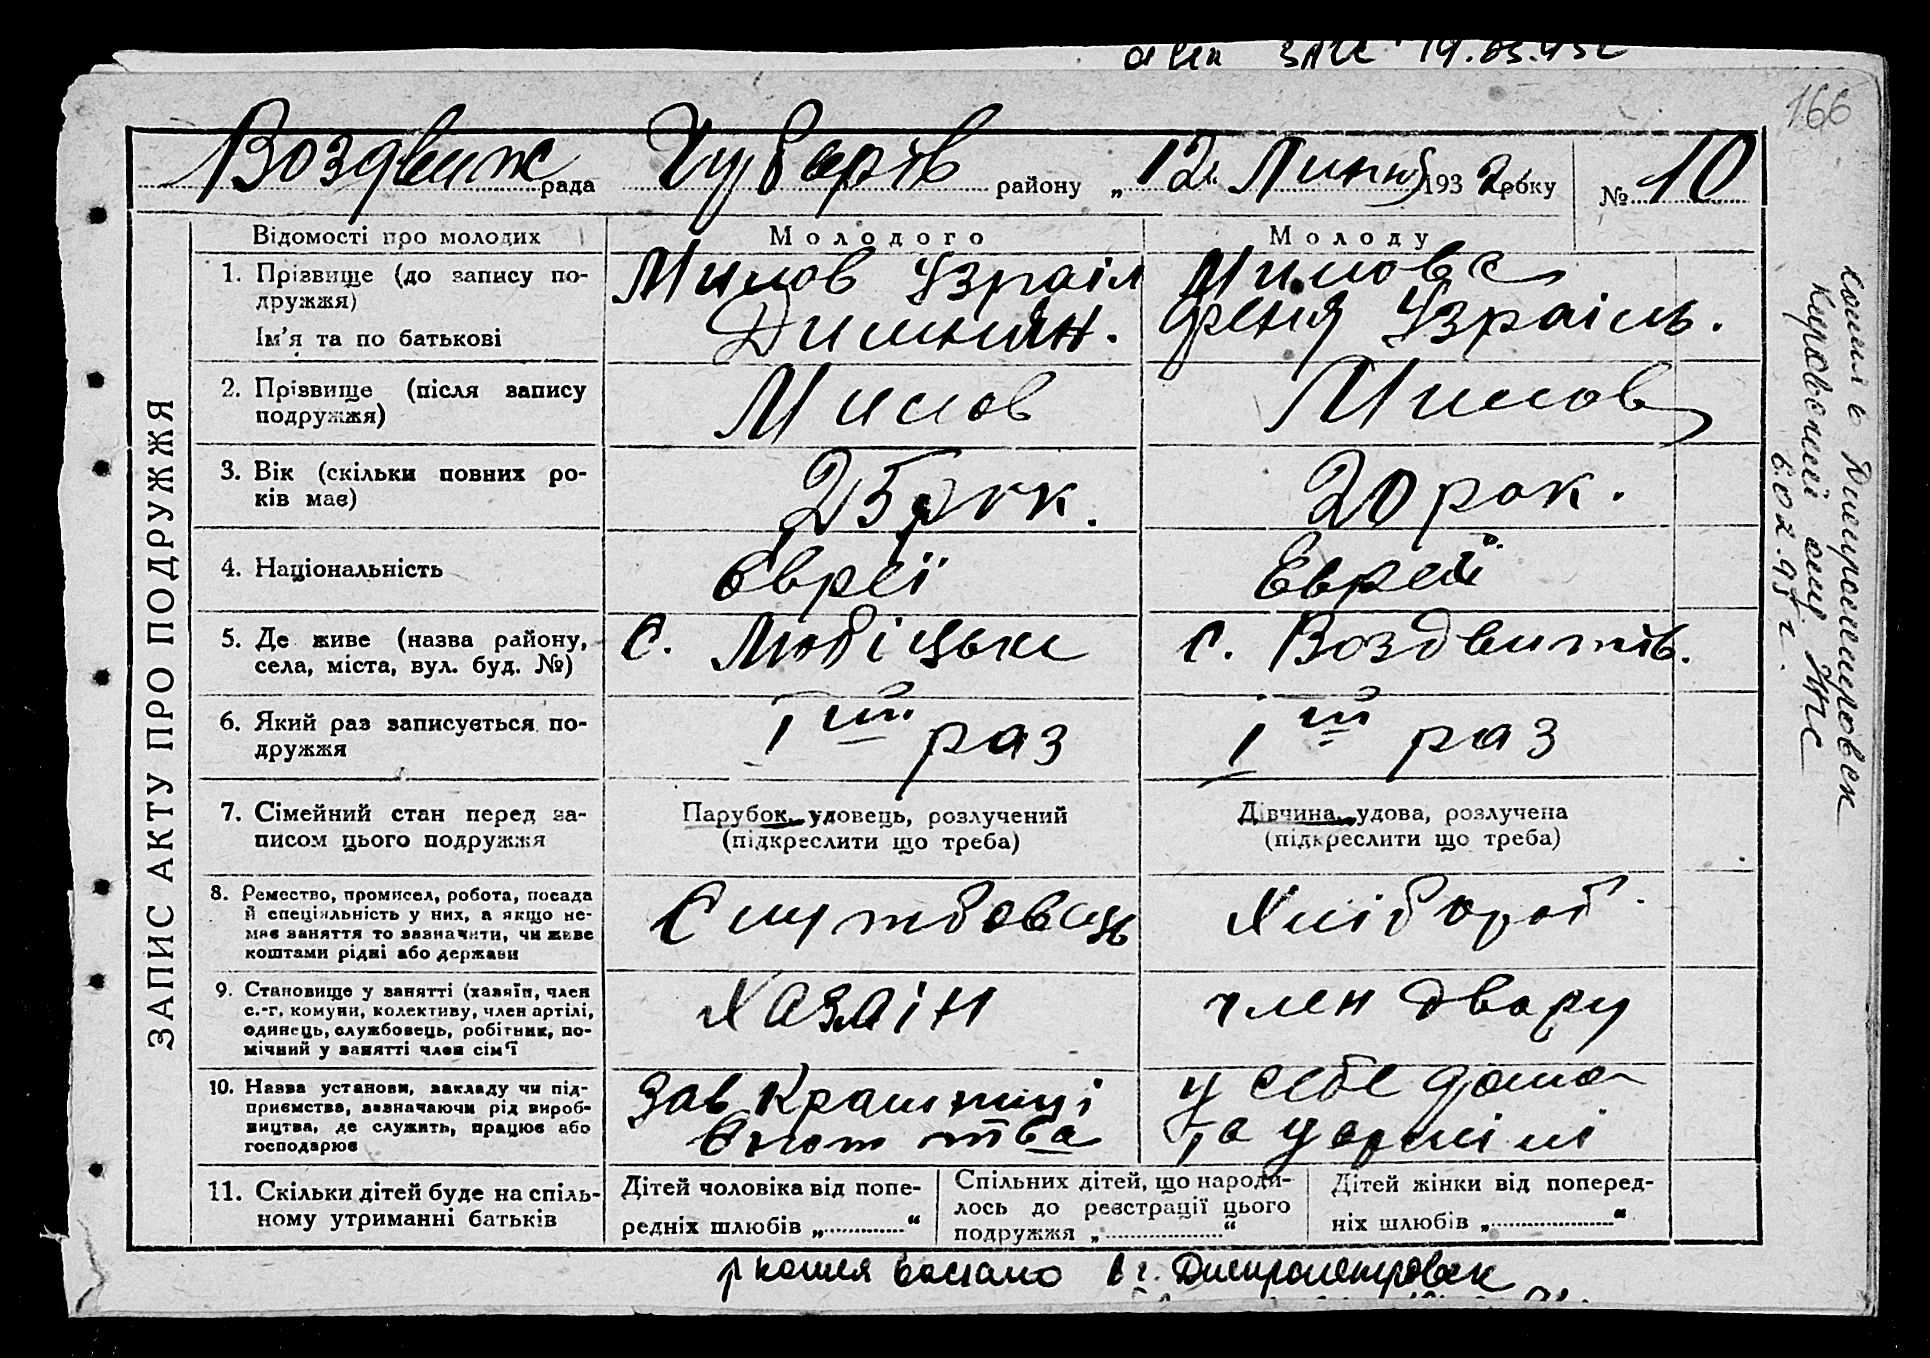 ЗАГС 19.03.
166
Воздвиж рада Чубарів району „12“ Липня 1932 року № 10
ЗАПИС АКТУ ПРО ПОДРУЖЖЯ
Відомості про молодих
Молодого
Молоду
1. Прізвище (до запису по-
дружжя)
Ім'я та по батькові
Милов Ізраіл
Милова
Феня Ізраіль.
2. Прізвище (після запису
подружжя)
Милов
Милов
3. Вік (скільки повних ро-
ків має)
25 рок.
20 рок.
4. Національність
Євреї
Еврей
5. Де живе (назва району,
села, міста, вул. буд. №)
с. Любіцьке
с. Воздвижів.
6. Який раз записується по-
дружжя
1ий раз
1ий раз
7. Сімейний стан перед за-
писом цього подружжя
Парубок, удовець, розлучений
(підкреслити що треба)
Дівчина, удова, розлучена
(підкреслити що треба)
8. Ремество, промисел, робота, посада
й спеціяльність у них, а якщо не-
має заняття то зазначити, чи живе
коштами рідні або держави
Службовець
Хлібороб
9. Становище у занятті (хазяїн, член
с.-г. комуни, колективу, член артілі,
одинець, службовець, робітник, по-
мічний у занятті член сім'ї
Хазяін
член двору
10. Назва установи, закладу чи під-
приємства, зазначаючи рід вироб-
ництва, де служить, працює або
господарює
Зав Крамниці
у себе дома
11. Скільки дітей буде на спіль-
ному утриманні батьків
Дітей чоловіка від попе-
редніх шлюбів „ “
Спільних дітей, що народи-
лось до реєстрації цього
подружжя „ “
Дітей жінки від поперед-
ніх шлюбів „ “
копия в Днепропетровск
Кировский ЗАГС
6.02.95 г.
копия в г. Днепропетровск